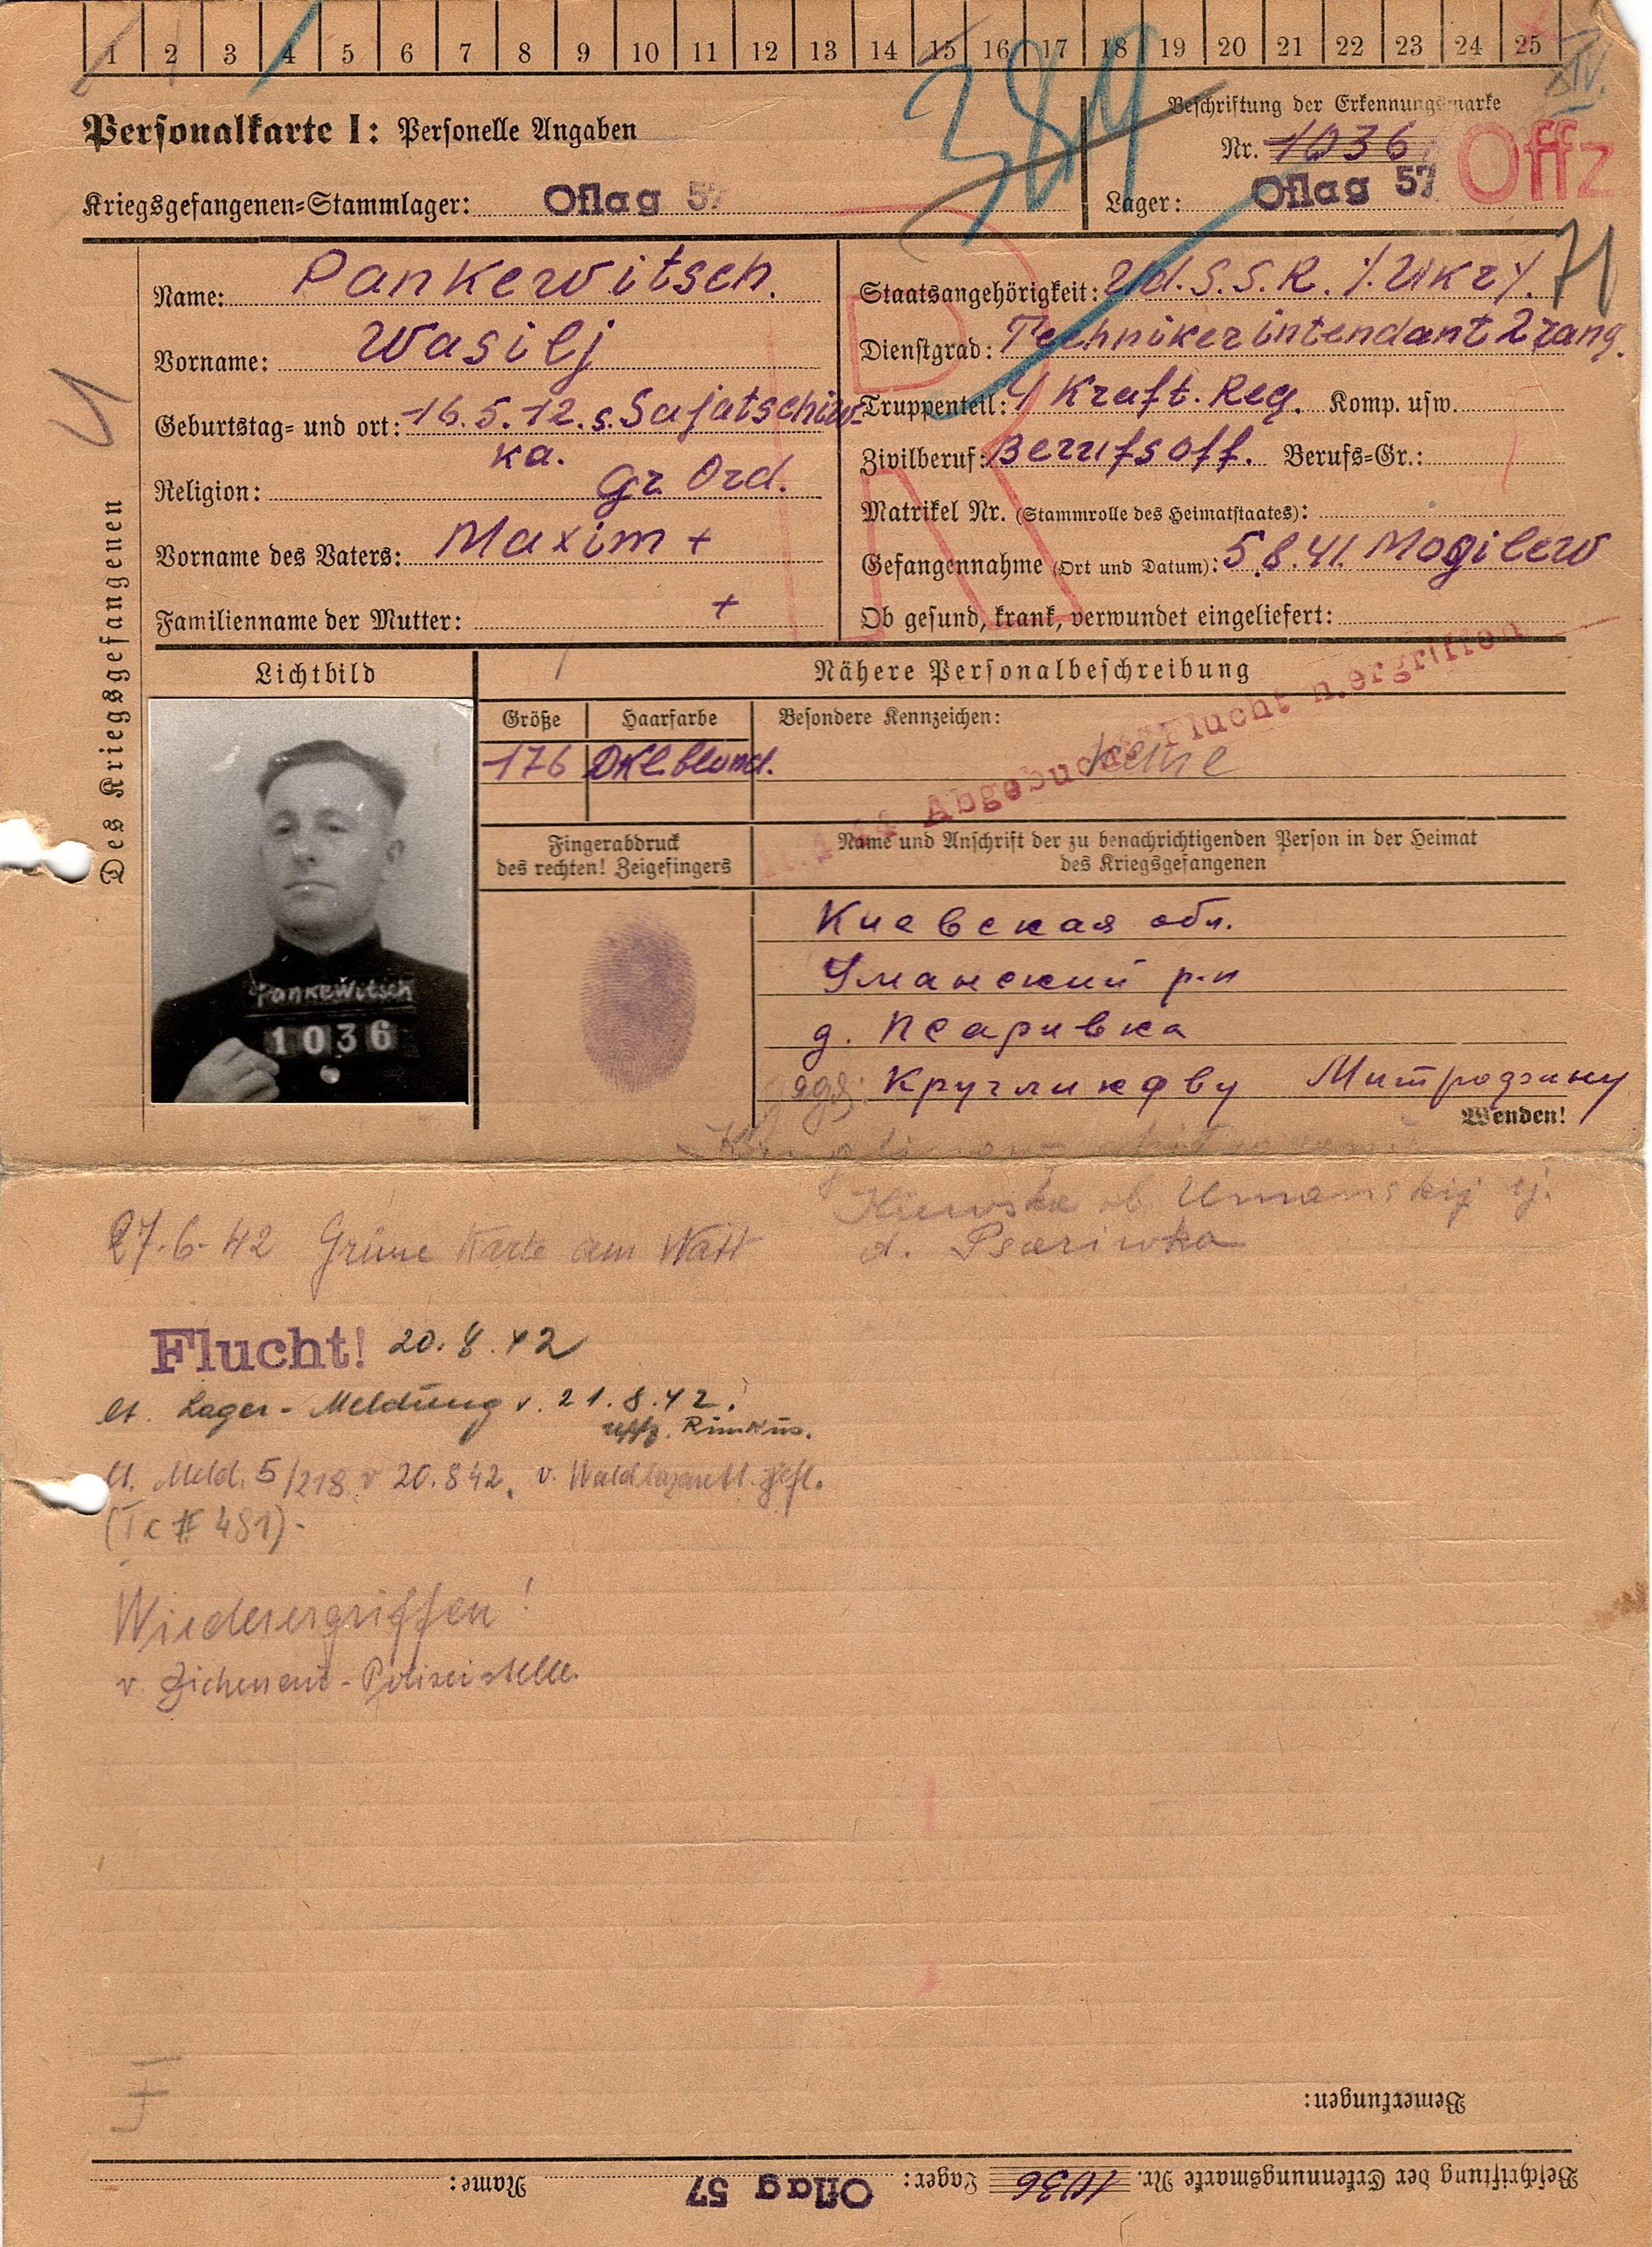 1 2 3 4 5 6 7 8 9 10 11 12 13 14 15 16 17 18 19 20 21 22 23 24 25
Personalkarte I: Personelle Angaben
Beschriftung der Erkennungsmarke
Nr. 1036
Offz
Kriegsgefangenen-Stammlager: Oflag 57
Lager: Oflag 57
Des Kriegsgefangenen
Name: Pankewitsch.
Vorname: Wasilj
Geburtstag- und ort: 16.5.12. s. Sajatschiw-
ka.
Religion: gr. Ord.
Vorname des Vaters: Maxim +
Familienname der Mutter: +
Staatsangehörigkeit: Ud.S.S.R. /Ukr/.
71
Dienstgrad: Technikerintendant 2 rang.
Truppenteil: 4 Kraft. Reg. Komp. usw.
Zivilberuf: Berufsoff. Berufs-Gr.:
Matrikel Nr. (Stammrolle des Heimatstaates):
Gefangennahme (Ort und Datum): 5.8.41. Mogilew
Ob gesund, krank, verwundet eingeliefert:
Lichtbild
Nähere Personalbeschreibung
Größe Haarfarbe Besondere Kennzeichen:
176 Dkl. blond. keine
Abgebucht Flucht n.ergriffen
Fingerabdruck
des rechten! Zeigefingers
Name und Anschrift der zu benachrichtigenden Person in der Heimat
des Kriegsgefangenen
Pankewitsch
1036
Киевская обл.
Уманский р-н
д. Псаривка
Кругликову Митрофану
Wenden!
Kiewska ob. Umanskij rj.
d. Psariwka
27.6.42 Grüne Karte an WASt
Flucht! 20.8.42
lt. Lager-Meldung v. 21.8.42.
Uffz. Rimkus.
lt. Meld. 5/218 v. 20.8.42. v. Waldlazarett gefl.
Wiederergriffen!
v. Zichenau-Polizeistelle
Bemerkungen:
Beschriftung der Erkennungsmarke Nr. 1036 Lager: Oflag 57 Name: